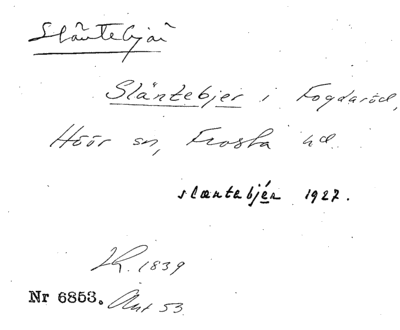 Släntebjär
Släntebjer i Fogdaröd,
Höör sn, Frosta hd.
slæntebjér 1927.
Lh. 1839
Nr 6853. Ant 53